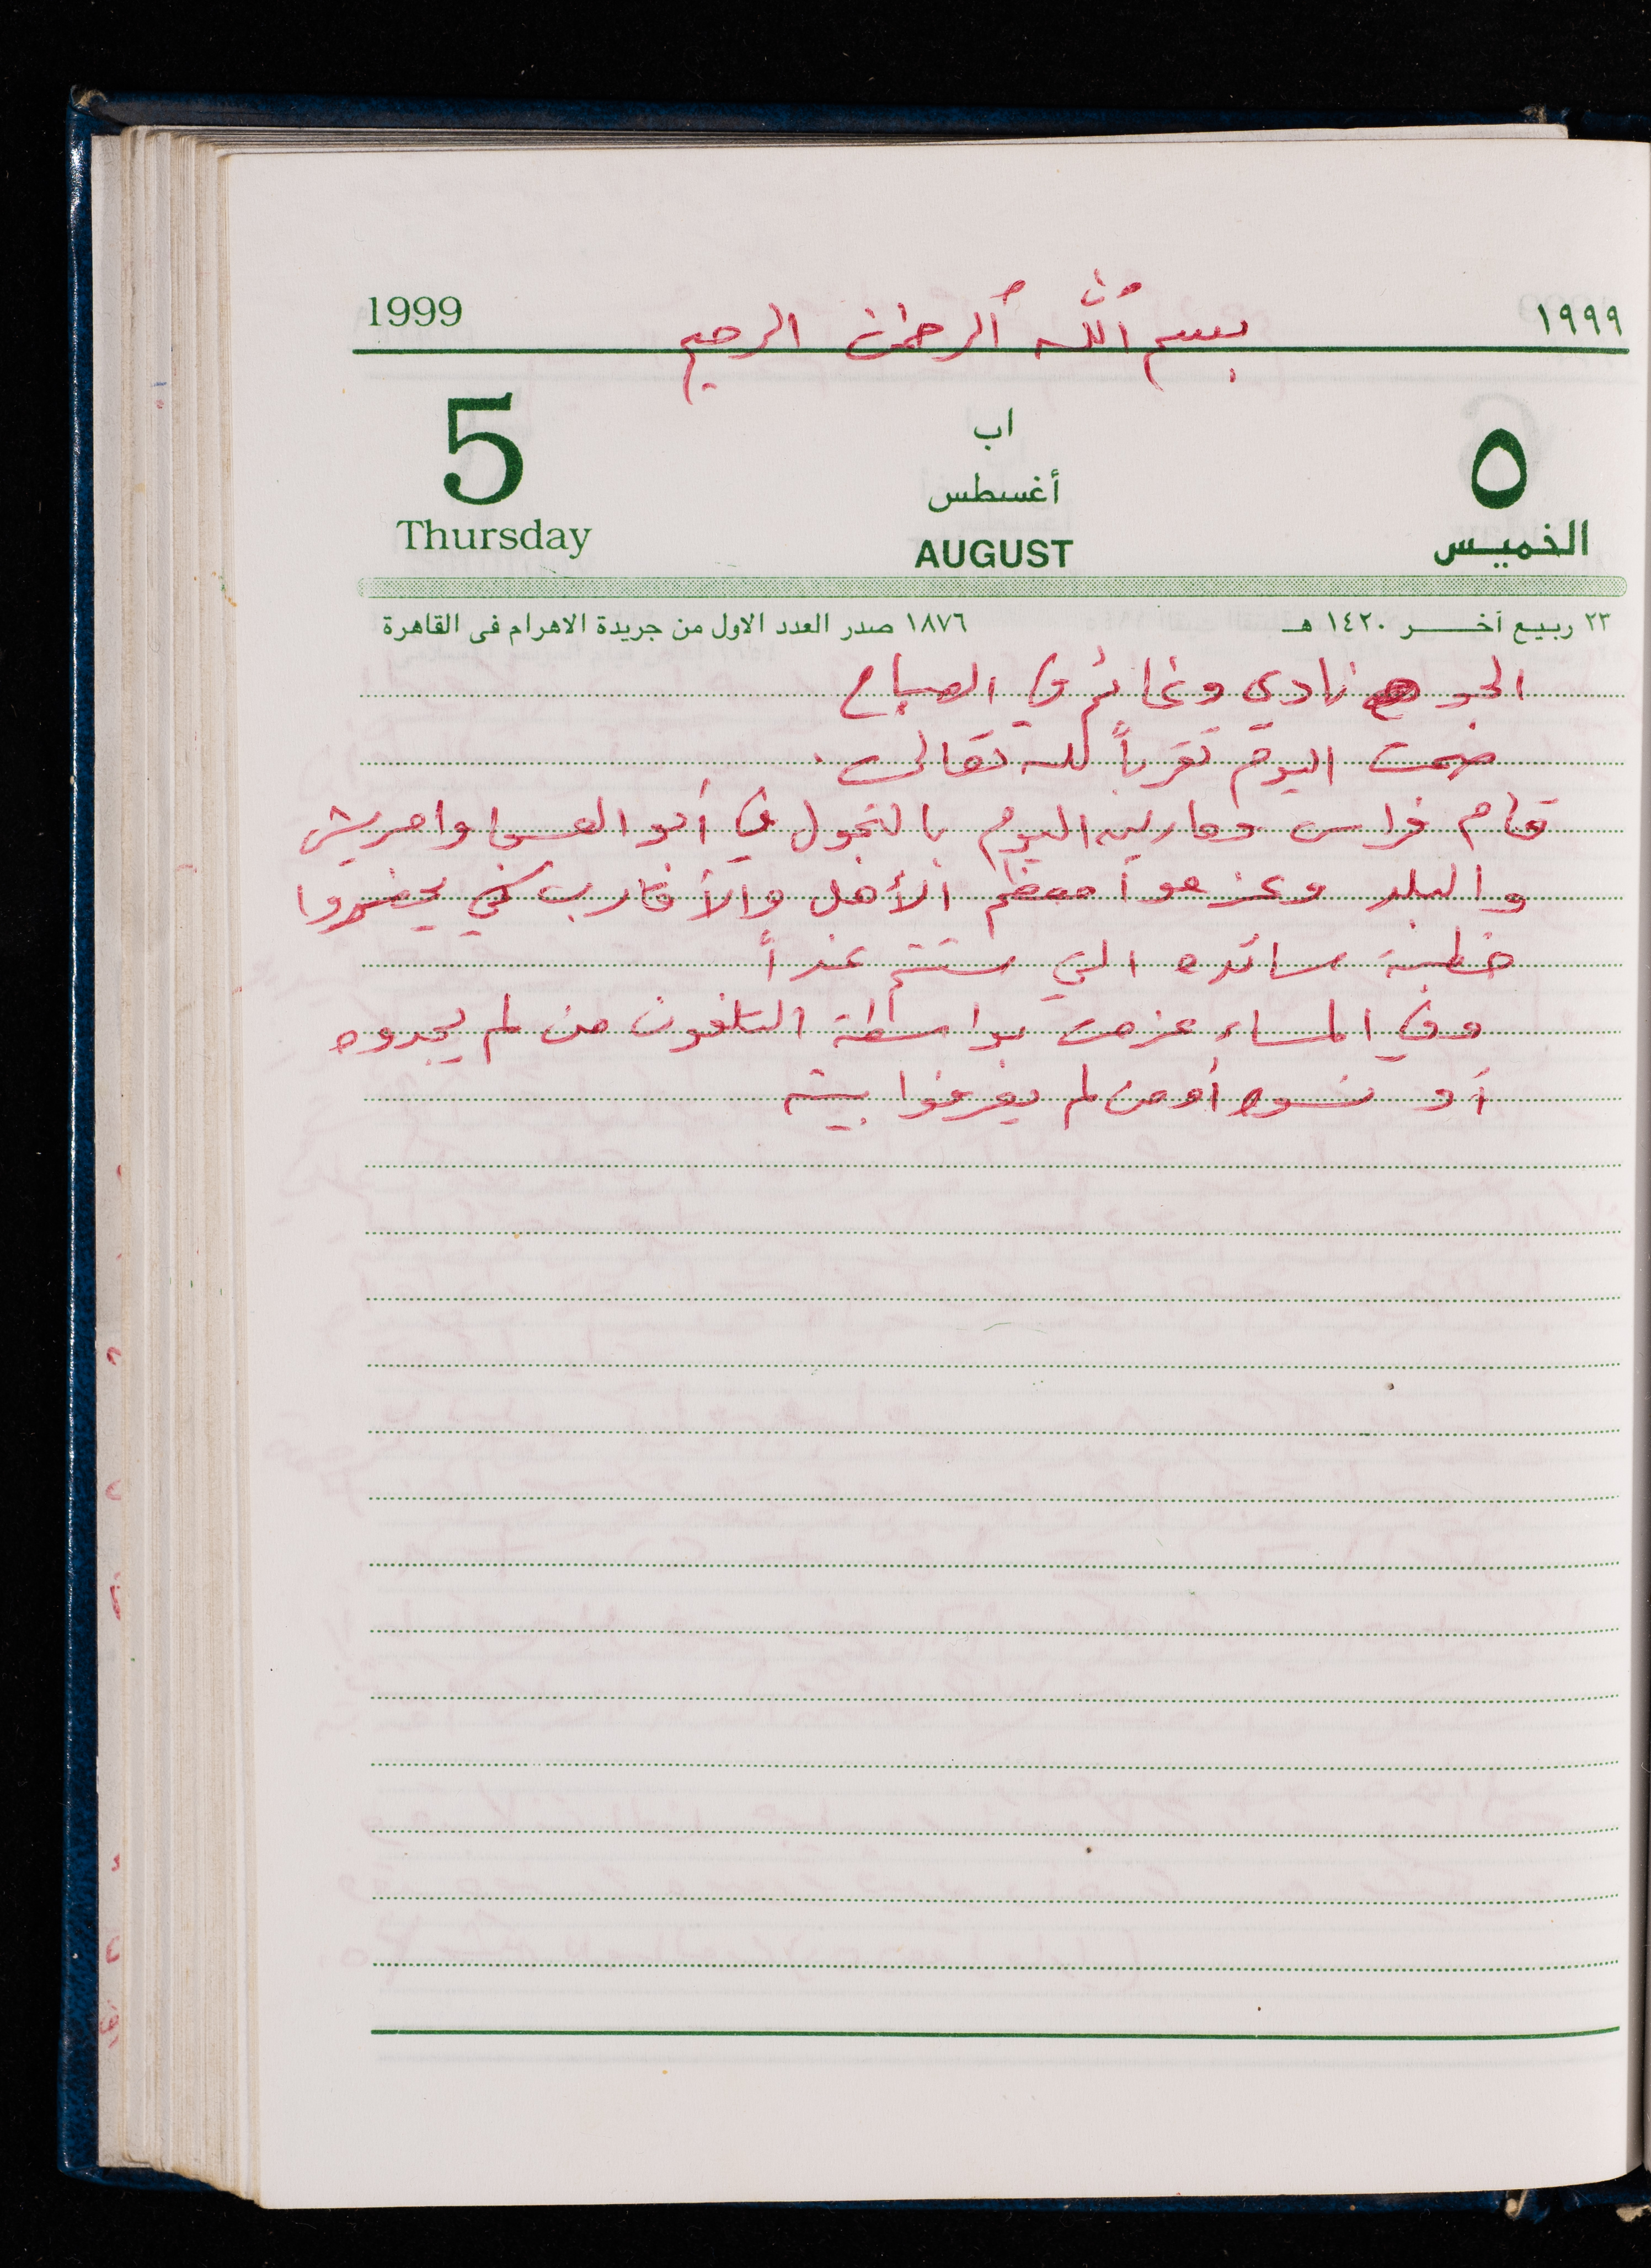 1999 بسم الله الرحمن الرحيم ١٩٩٩
5 اب ٥
أغسطس
Thursday AUGUST الخميس
٢٣ ربيع آخر ١٤٢٠ هـ ١٨٧٦ صدر العدد الاول من جريدة الاهرام فى القاهرة
الجو نادي وغائم في الصباح
صمت اليوم تقرباً لله تعالى.
قام فراس ومارينه اليوم بالتجول في أبو العسجا وامريش
والبلد وعزموا معظم الأهل والأقارب كي يحضروا
خطبة سائده التي ستتم غداً
وفي المساء عزمت بواسطة التلفون من لم يجدوه
أو نسوه أو من لم يعرفوا بيته